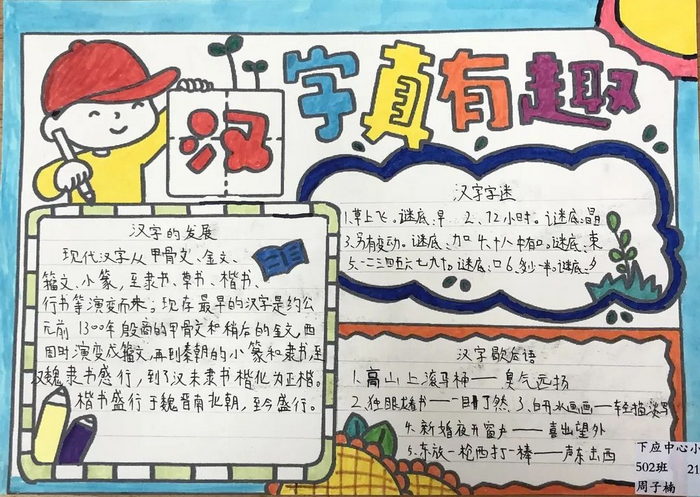 汉字真有趣
汉字的发展
现代汉字从甲骨文、金文、
籀文、小篆，至隶书、草书、楷书、
行书等演变而来。现存最早的汉字是约公
元前1300年殷商的甲骨文和稍后的金文，西
周时演变成籀文，再到秦朝的小篆和隶书，至
汉魏隶书盛行，到了汉末隶书楷化为正楷。
楷书盛行于魏晋南北朝，至今盛行。
汉字字迷
1.草上飞。谜底:早 2、12小时。谜底:晶
3.另有变动。谜底、加 4.十八中有口。谜底、束
5、一二三四五六七九十。谜底、口 6、多少一半。谜底、夕
汉字歇后语
1、高山上滚马桶——臭气远扬
2.独眼龙看书——一目了然 3、白开水画画——轻描淡写
4、新婚夜开窗户——喜出望外
5、东放一枪西打一棒——声东击西
下应中心小
502班 21
周子楠